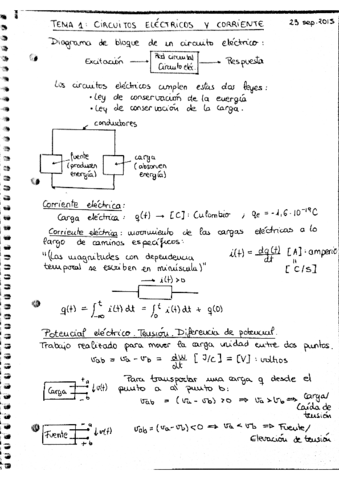 TEMA 1: CIRCUITOS ELÉCTRICOS Y CORRIENTE
23 sep. 2015
Diagrama de bloque de un circuito eléctrico:
Excitación → Red circuital
Circuito eléc. → Respuesta
Los circuitos eléctricos cumplen estas dos leyes:
• Ley de conservación de la energía
• Ley de conservación de la carga.
conductores
fuente (producen energía)
carga (absorven energía)
Corriente eléctrica:
Carga eléctrica: q(t) → [C]: Culombio , qe = -1,6·10⁻¹⁹C
Corriente eléctrica: movimiento de las cargas eléctricas a lo
largo de caminos específicos:
i(t) = dq(t)/dt [A]: amperio
"(Las magnitudes con dependencia
temporal se escriben en minúscula)"
[C/s]
→ i(t)>0
q(t) = ∫_{-∞}^{t} i(t) dt = ∫_0^t i(t) dt + q(0)
Potencial eléctrico. Tensión. Diferencia de potencial.
Trabajo realizado para mover la carga unidad entre dos puntos.
Vab = Va - Vb = dw/dt [J/C] = [V] : voltios
Para transportar una carga q desde el
punto a al punto b:
Carga + a - b ↓v(t)
Vab = (Va - Vb) > 0 ⇒ Va > Vb ⇒ Carga/
Caída de
tensión
Fuente ↓v(t)
Vab = (Va - Vb) < 0 ⇒ Va < Vb ⇒ Fuente/
Elevación de tensión